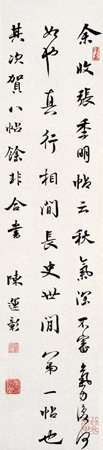 余收張季明帖云秋氣深不審氣力復何
如也真行相間長史世間第一帖也
其次賀八帖餘非合書 陳運彰